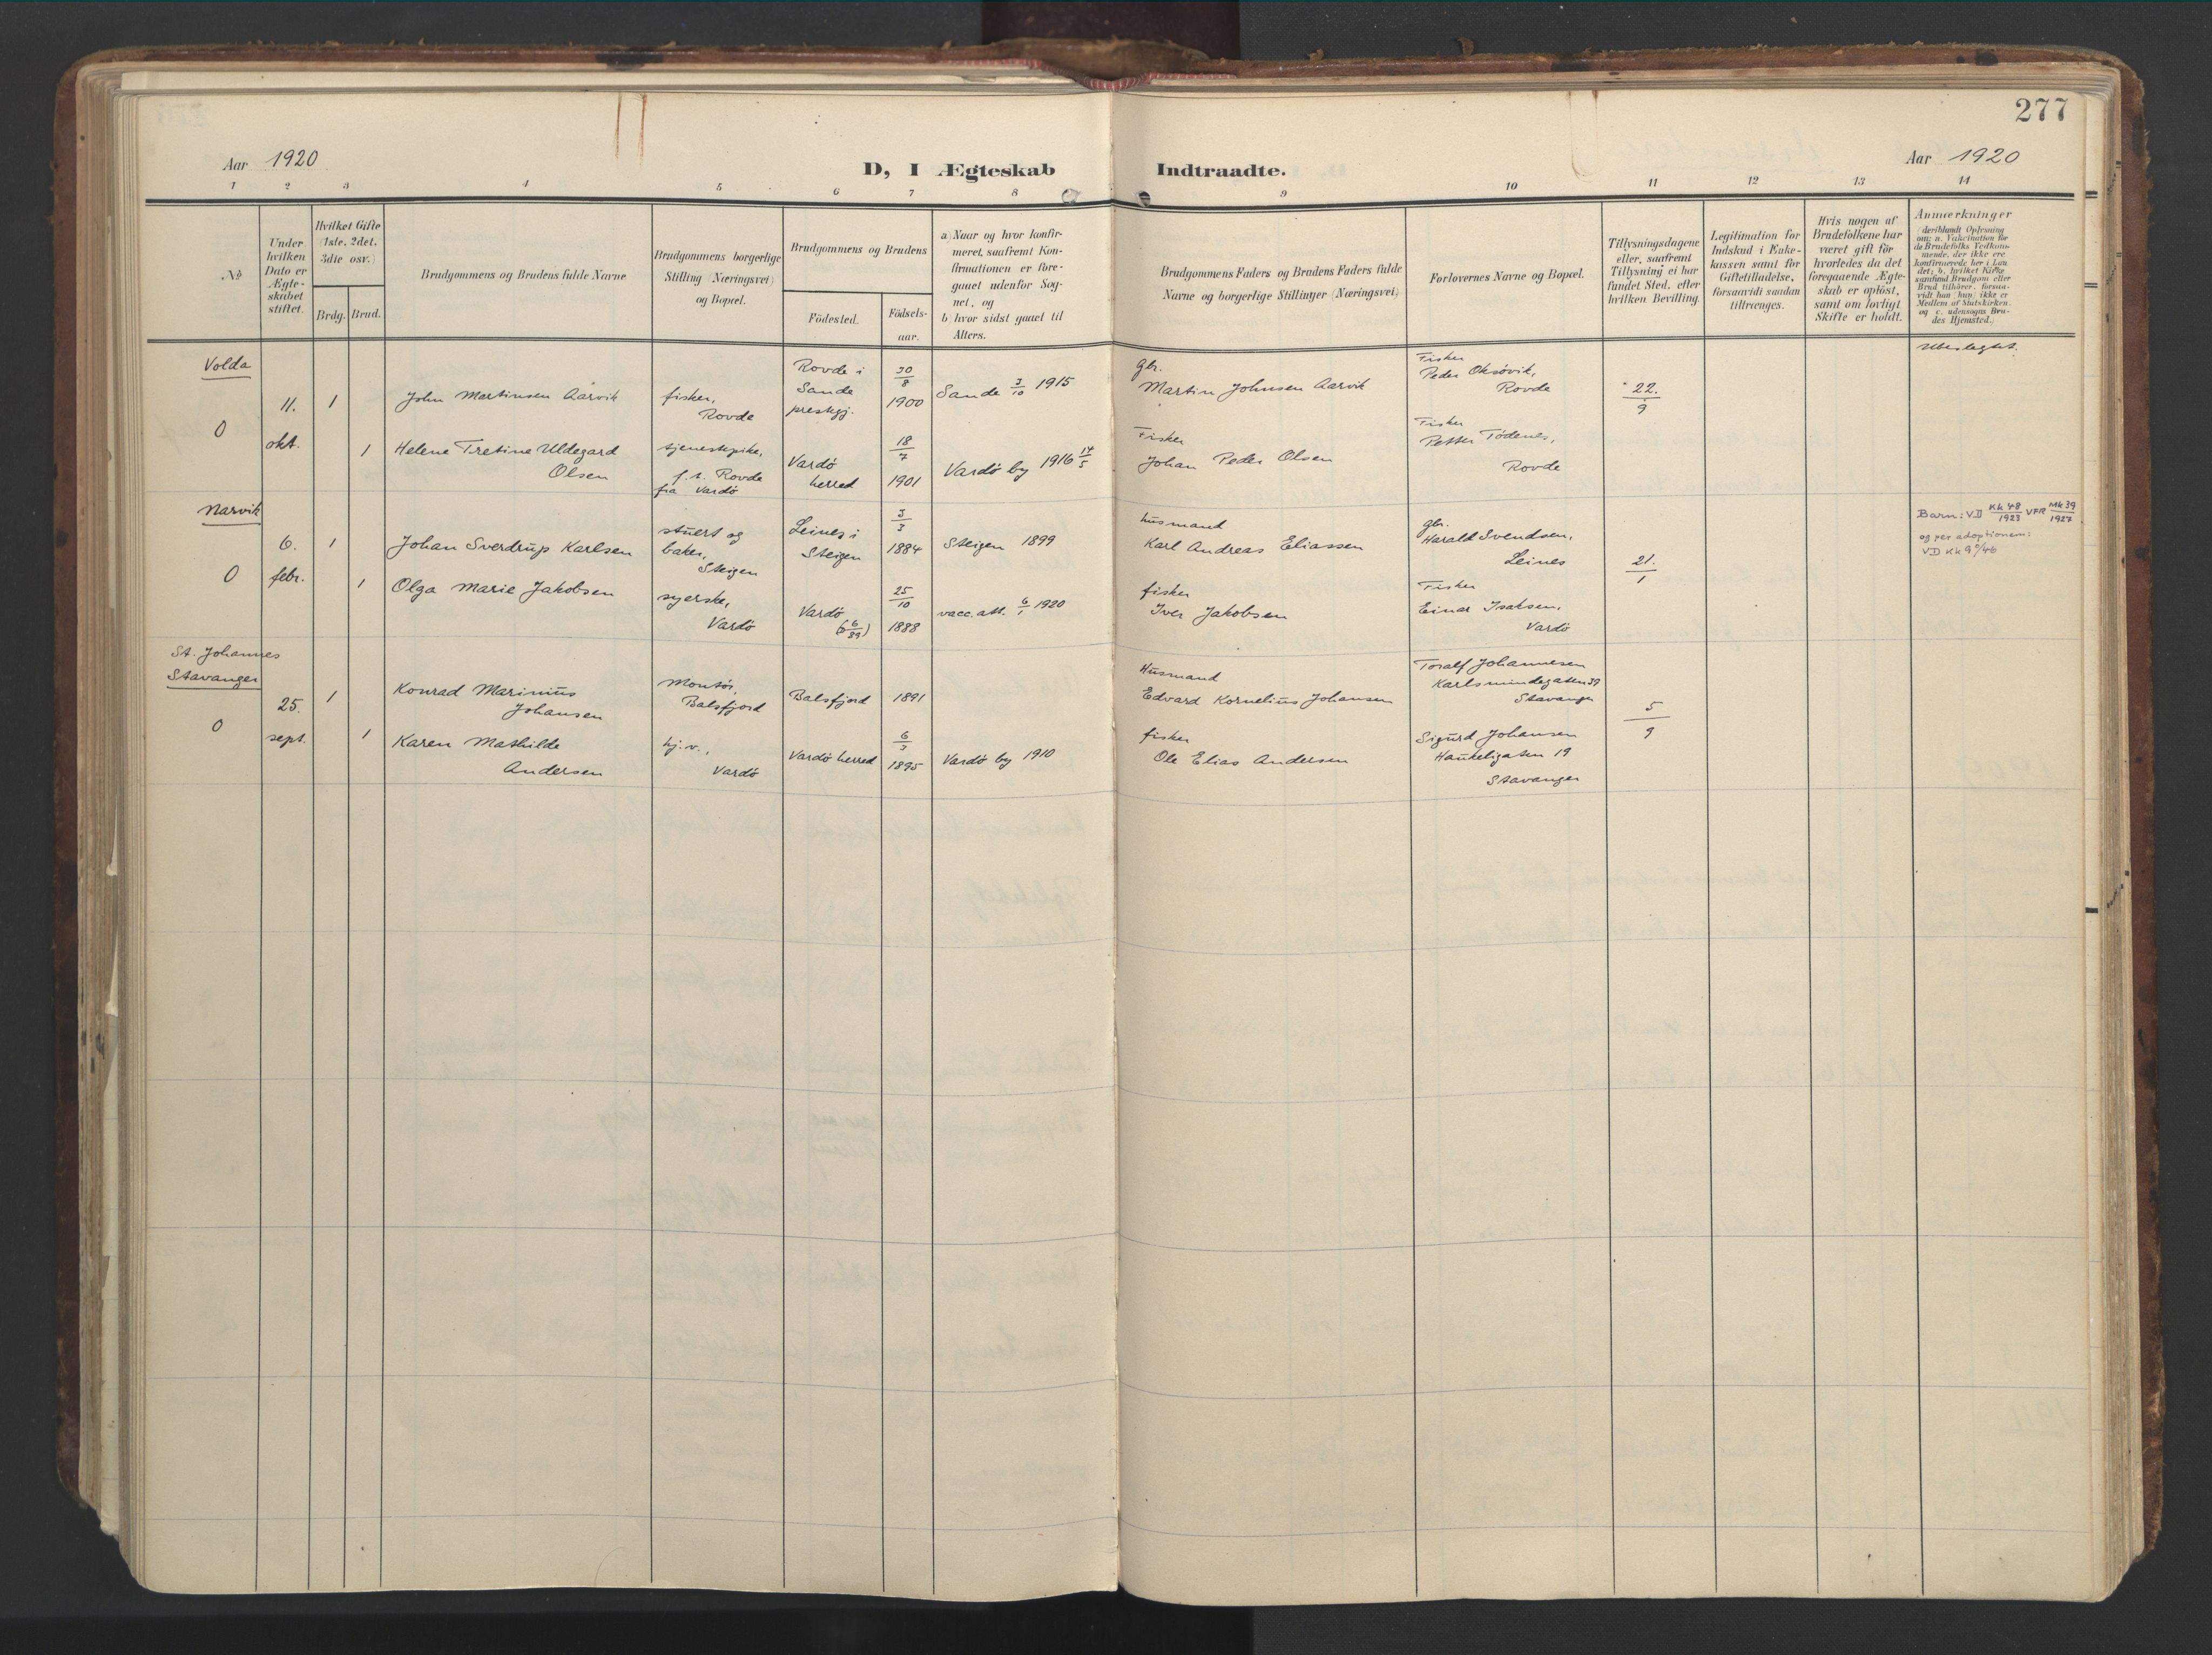 277
Aar 1920
D, I Ægteskab Indtraadte.
Aar 1920
1 2 3 4 5 6 7 8 9 10 11 12 13 14
No
Under
hvilken
Dato er
Ægte-
skabet
stiftet.
Hvilket Gifte
(1ste, 2det,
3die osv.)
Brdg. Brud.
Brudgommens og Brudens fulde Navne
Brudgommens borgerlige
Stilling (Næringsvei)
og Bopæl.
Brudgommens og Brudens
Födested.
Födsels-
aar.
a) Naar og hvor konfir-
meret, saafremt Kon-
firmationen er fore-
gaaet udenfor Sog-
net, og
b) hvor sidst gaaet til
Alters.
Brudgommens Faders og Brudens Faders fulde
Navne og borgerlige Stillinger (Næringsvei)
Forlovernes Navne og Bopæl.
Tillysningsdagene
eller, saafremt
Tillysning ei har
fundet Sted, efter
hvilken Bevilling.
Legitimation for
Indskud i Enke-
kassen samt for
Giftetilladelse,
forsaavidt saadan
tiltrænges.
Hvis nogen af
Brudefolkene har
været gift för
hvorledes da det
foregaaende Ægte-
skab er oplöst,
samt om lovligt
Skifte er holdt.
Anmærkninger
(deriblandt Oplysning
om: a. Vakcination for
de Brudefolks Vedkom-
mende, der ikke ere
konfirmerede her i Lan
det; b. hvilket Kirke
samfund Brudgom eller
Brud tilhörer, forsaa-
vidt han (hun) ikke er
Medlem af Statskirken.
og c. udensogns Bru-
des Hjemsted.)
Volda
0
11.
okt.
1
John Martinsen Aarvik
fisker,
Rovde
Rovde i
Sande
prestgj.
30/8
1900
Sande 3/10 1915
Gbr.
Martin Johnsen Aarvik
Fisker
Peder Oksövik,
Rovde
22./9
Ubeslegtet.
1
Helene Tretine Uldegard
Olsen
tjenestepike,
f.t. Rovde
fra Vardö
Vardö
herred
18/7
1901
Vardö by 1916 14/5
Fisker
Johan Peder Olsen
Fisker
Petter Tödenes,
Rovde
Narvik
0
6.
febr.
1
Johan Sverdrup Karlsen
stuert og
baker,
Steigen
Leines i
Steigen
3/3
1884
Steigen 1899
husmand
Karl Andreas Eliassen
gbr.
Harald Svendsen,
Leines
21./1
Barn: VD Kk 48/1923 VFR Mk 39/1927
og per adoptionem:
VD Kk 9 /46
1
Olga Marie Jakobsen
syerske,
Vardö
Vardö
25/10
1888
vacc. att. 6/1 1920
fisker
Iver Jakobsen
Fisker
Einar Isaksen,
Vardö
St. Johannes
Stavanger
0
25.
sept.
1
Konrad Marinius
Johansen
Montör,
Balsfjord
Balsfjord
1891
Husmand
Edvard Kornelius Johansen
Toralf Johannesen
Karlsmindegaten 39
Stavanger
5/9
1
Karen Mathilde
Andersen
hj.v.,
Vardö
Vardö herred
6/3
1895
Vardö by 1910
fisker
Ole Elias Andersen
Sigurd Johansen
Haukeligaten 19
Stavanger